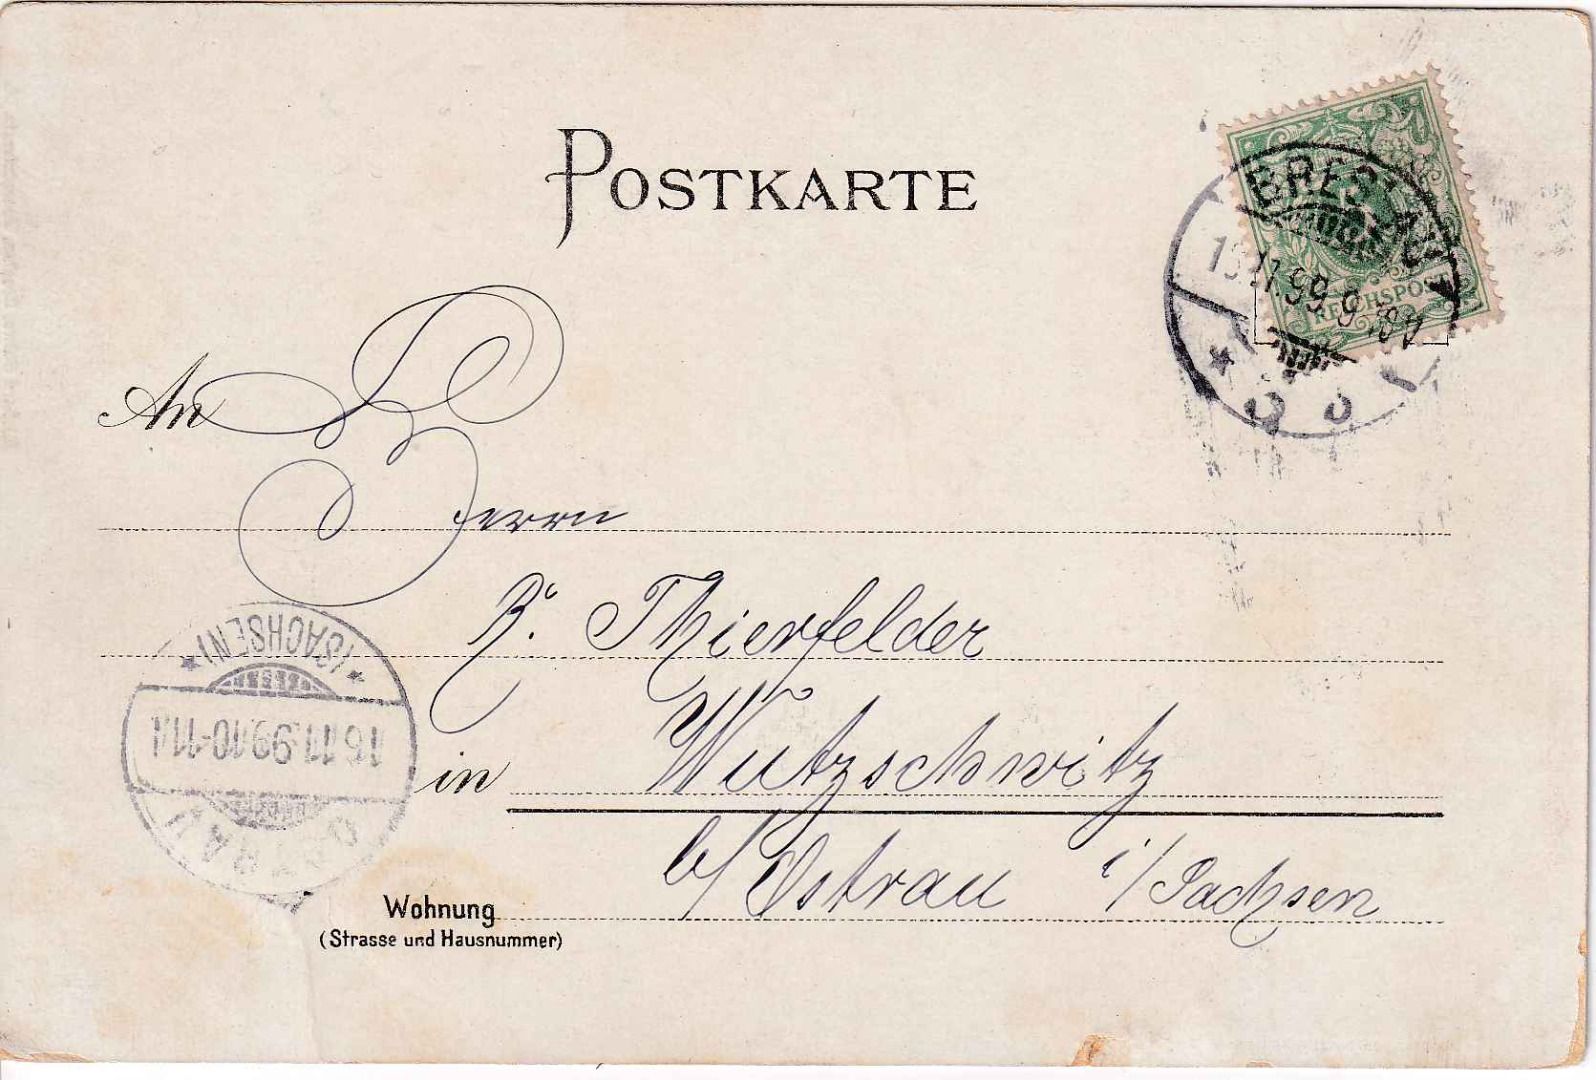 POSTKARTE
BRESLAU
.11.99 9-10V
REICHSPOST
An
Herrn
R. Thierfelder
in Wutzschwitz
b/Ostrau i/Sachsen
Wohnung
(Strasse und Hausnummer)
*(SACHSEN)*
16.11.99.10-11V.
OSTRAU